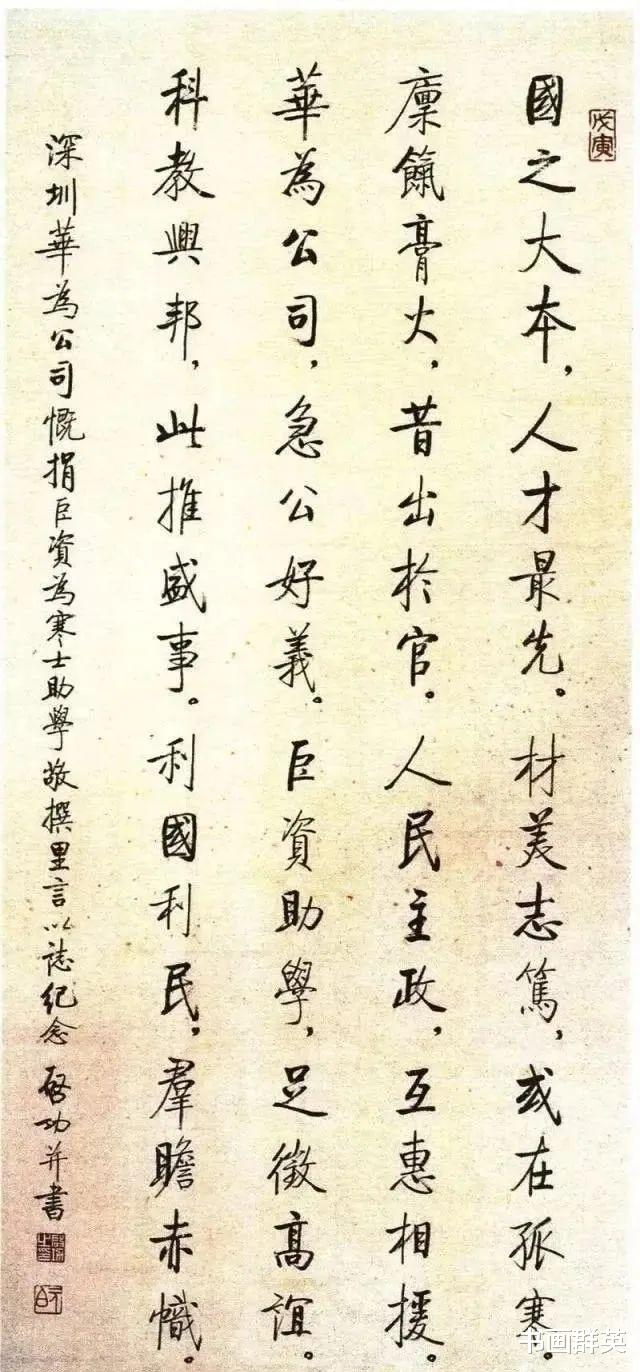 戊寅
國之大本，人才最先。材美志篤，或在孤寒。
廩餼膏火，昔出於官。人民主政，互惠相援。
華為公司，急公好義。巨資助學，足徵高誼。
科教興邦，此推盛事。利國利民，羣瞻赤幟。
深圳華為公司慨捐巨資為寒士助學敬撰里言以誌紀念 啓功并書
书画群英